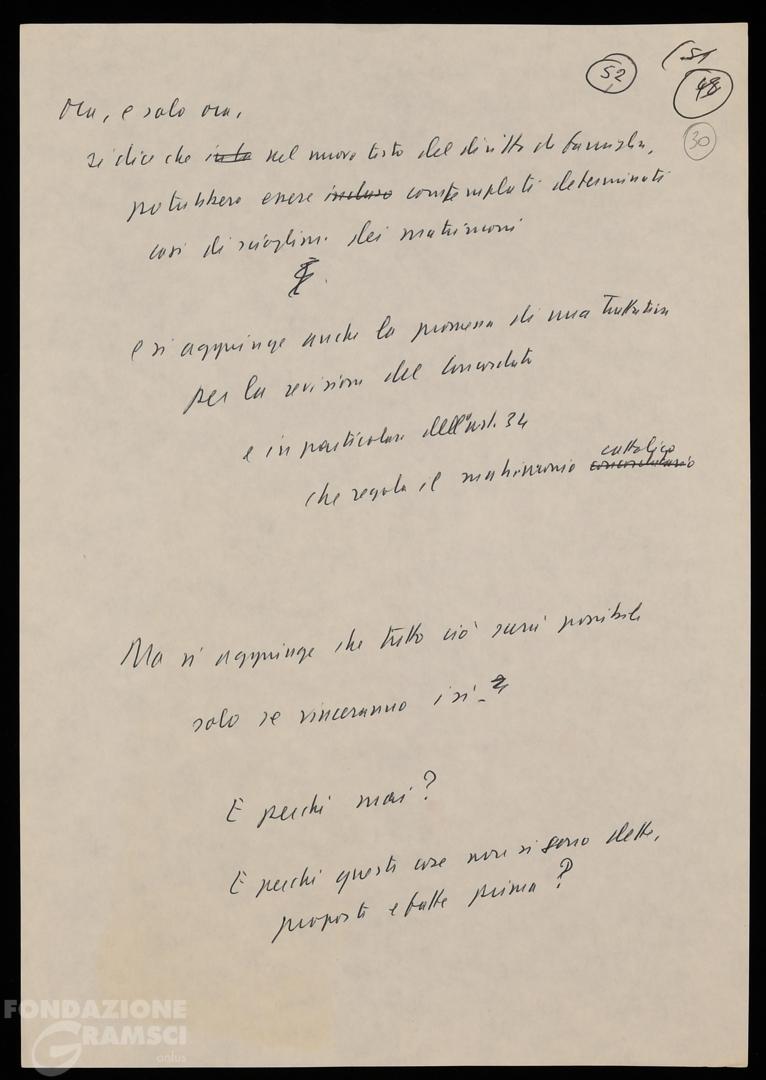 52
51
48
30
Ora, e solo ora,
si dice che nel nuovo testo del diritto di famiglia,
potrebbero essere incluso contemplati determinati
casi di scioglim. dei matrimoni
e si aggiunge anche la promessa di una trattativa
per la revisione del Concordato
e in particolare dell'art. 34
cattolico
che regola il matrimonio concordatario
Ma si aggiunge che tutto ciò sarà possibile
solo se vinceranno i sì -
E perché mai?
E perché queste cose non si sono dette,
proposte e fatte prima?
FONDAZIONE
GRAMSCI
onlus